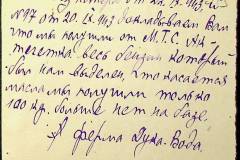 №97 от 20.IX.1963 докладываем Вам
что мы получили от М.Т.С. Ак-
течетка весь бензин который
был нам выделен, что касается
масла мы получили только
100 кг. больше нет на базе.
ферма Дука-Вода